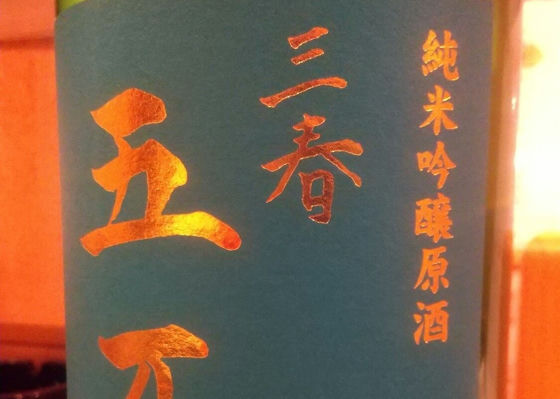 純米吟醸原酒
三春
五万